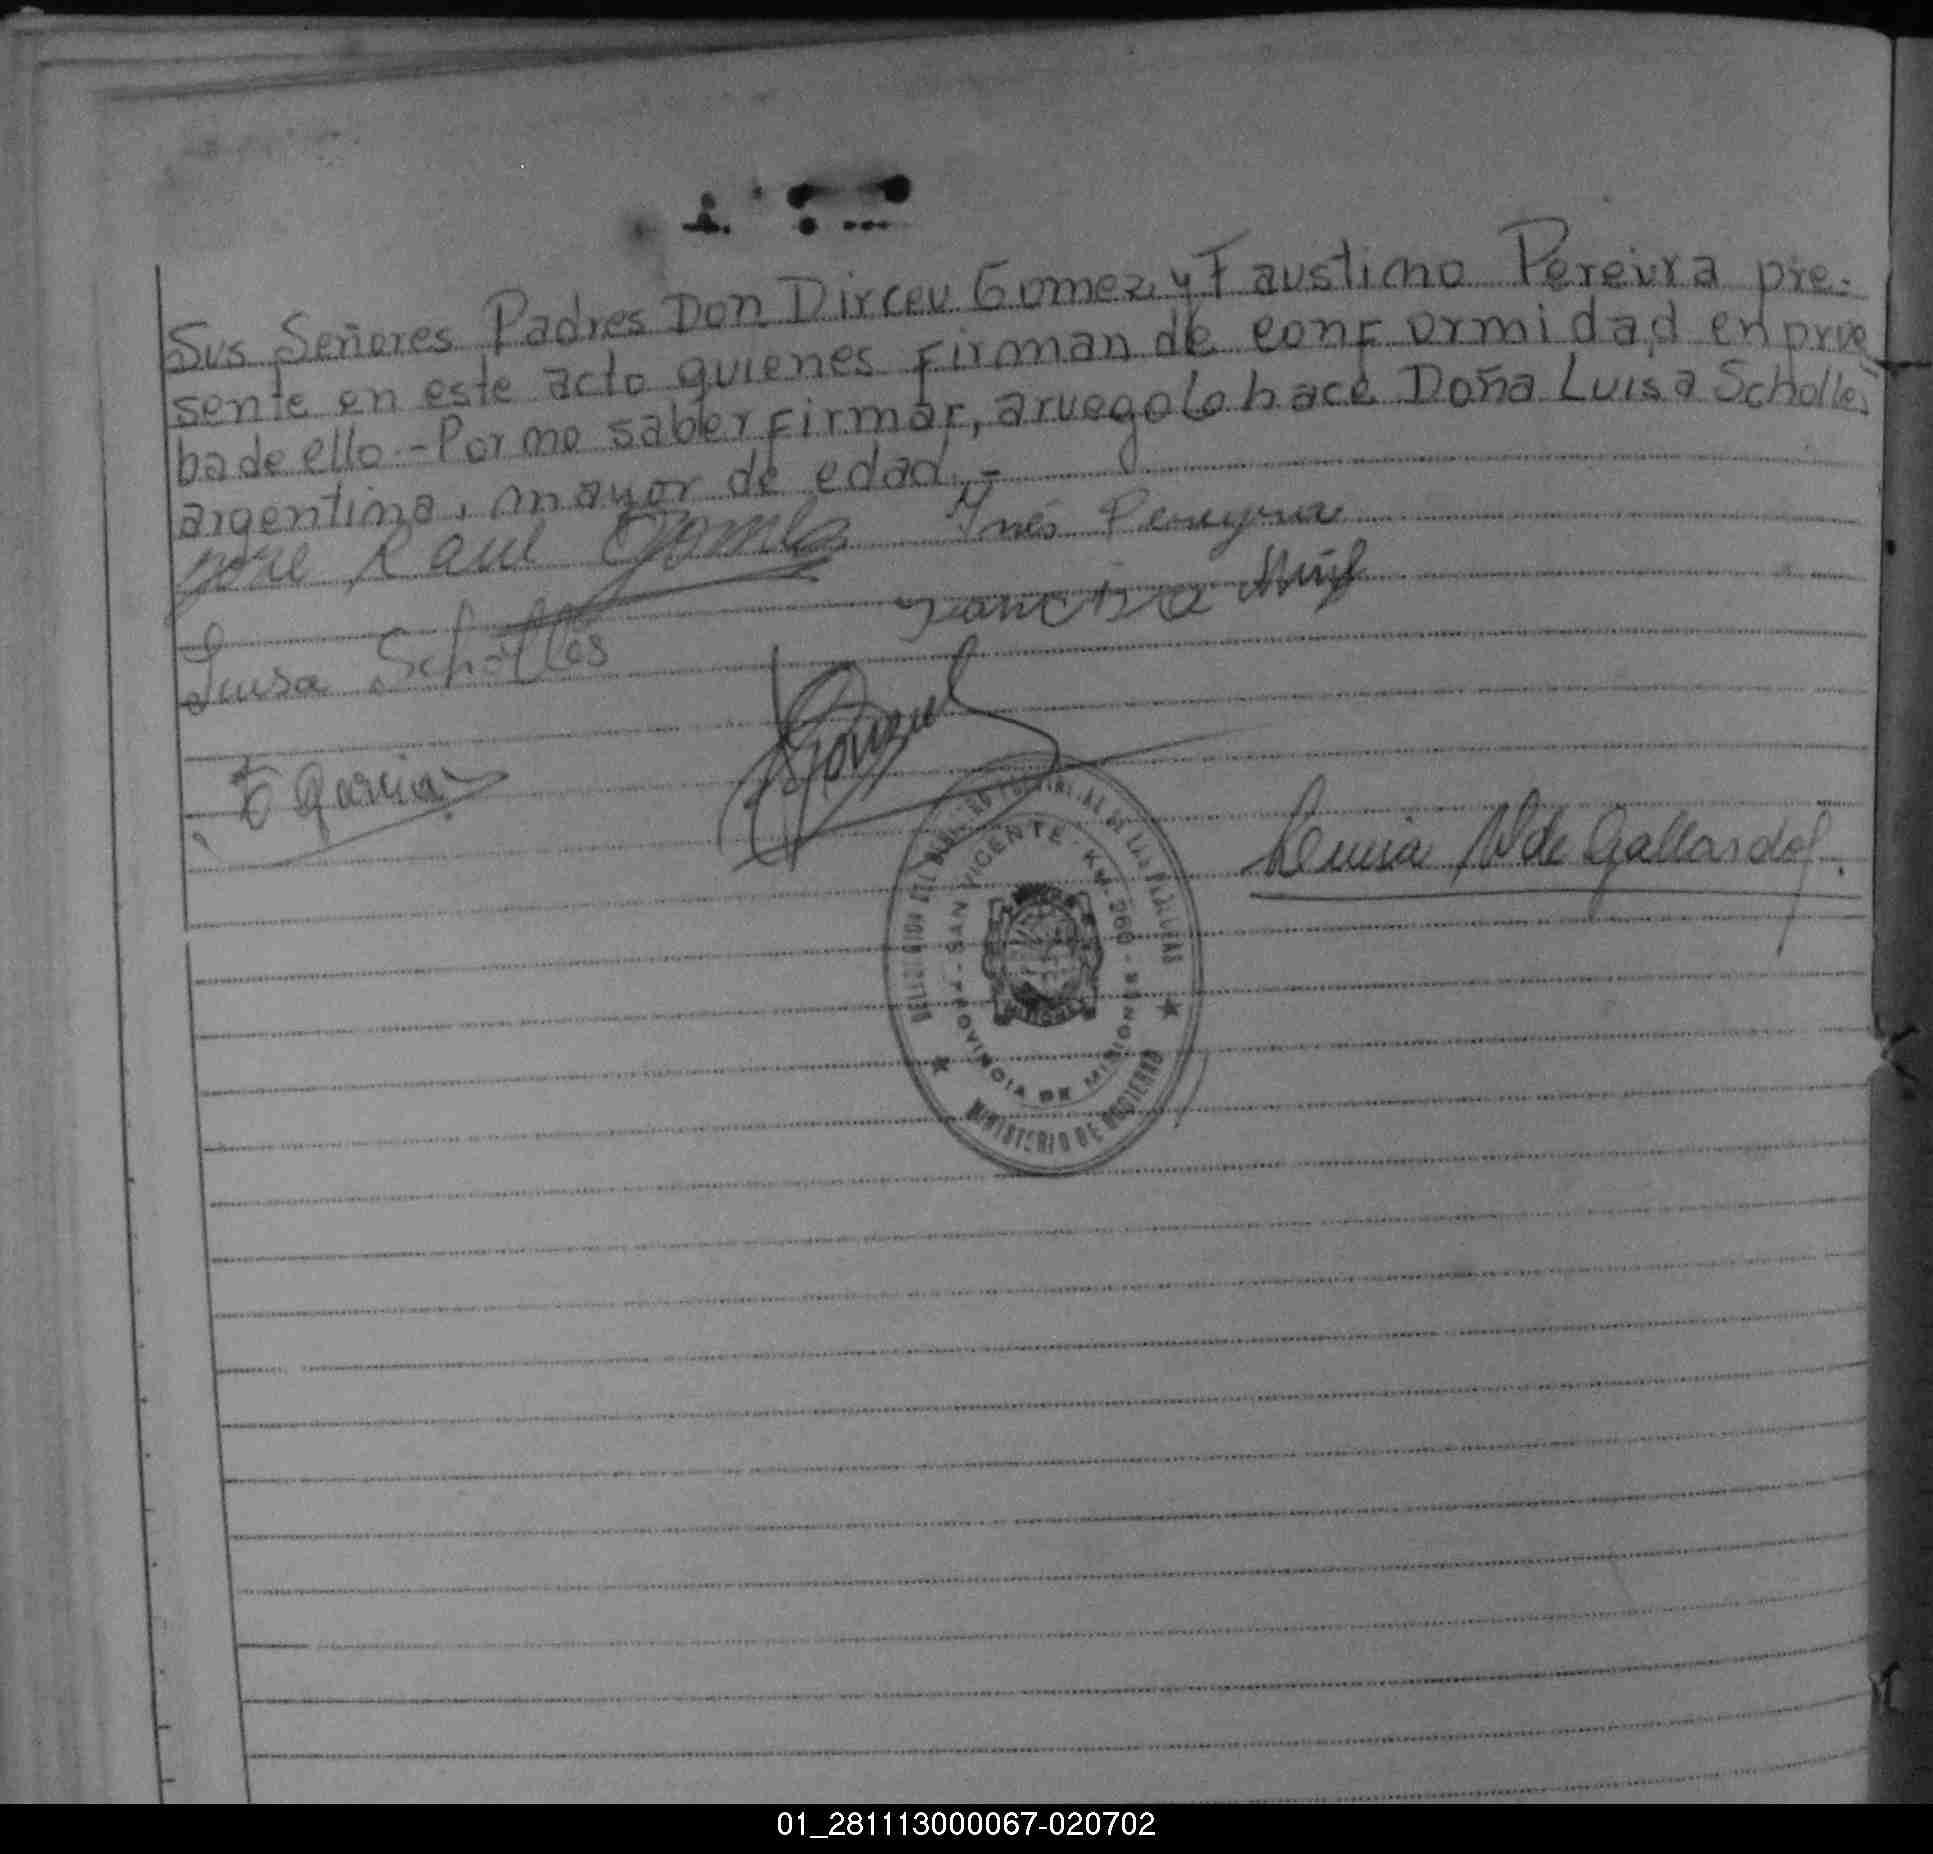 Sus Señores Padres Don Dirceu Gomez y Faustino Pereira pre-
sente en este acto quienes firman de conformidad en prue
ba de ello.- Por no saber firmar, aruego lo hace Doña Luisa Scholles
argentina, mayor de edad.-
Jose Raul Gomes Inés Pereyra
Luisa Scholles
E Garcia
de Gallardo
DELEGACION DEL REGISTRO PROVINCIAL DE LAS PERSONAS
SAN VICENTE - KM 260 - PROVINCIA DE MISIONES
MISIONES
MINISTERIO DE GOBIERNO
01_281113000067-020702